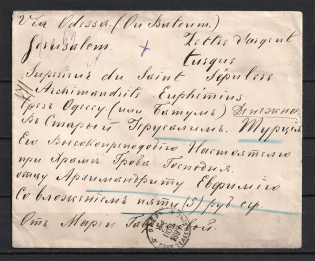 Via Odessa (Ou Batoum.)
Jerusalem. Lettre d'argent
turque
Superieur du Saint Sepulcre
Archimandrite Euphimius
Чрез Одессу (или Батумъ) Денежное
Въ Старый Іерусалимъ. Турція
Его Высокопреподобію Настоятелю
при Храмѣ Гроба Господня.
отцу Архимандриту Евфимію
Со вложеніемъ пяти (5) руб сер.
Отъ Маріи